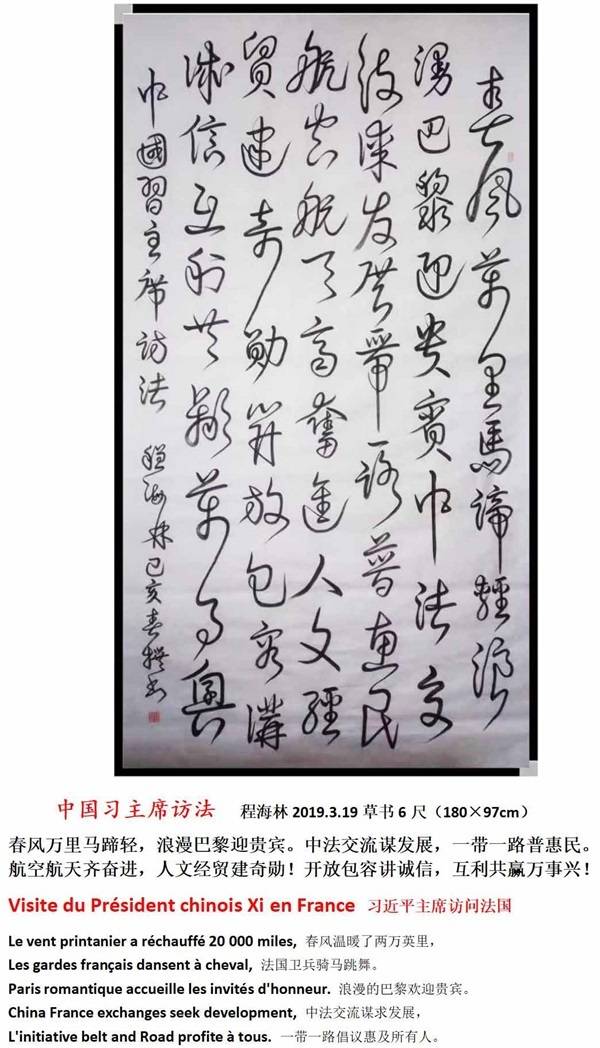 春風萬里馬蹄輕浪
漫巴黎迎貴賓中法交
流謀发展一帶一路普惠民
航空航天齐奮進人文經
貿建奇勛開放包容講
誠信互利共赢萬事興
中國習主席訪法 程海林己亥春撰书
中国习主席访法 程海林 2019.3.19 草书 6 尺（180×97cm）
春风万里马蹄轻，浪漫巴黎迎贵宾。中法交流谋发展，一带一路普惠民。
航空航天齐奋进，人文经贸建奇勋！开放包容讲诚信，互利共赢万事兴！
Visite du Président chinois Xi en France 习近平主席访问法国
Le vent printanier a réchauffé 20 000 miles, 春风温暖了两万英里，
Les gardes français dansent à cheval, 法国卫兵骑马跳舞。
Paris romantique accueille les invités d'honneur. 浪漫的巴黎欢迎贵宾。
China France exchanges seek development, 中法交流谋求发展，
L'initiative belt and Road profite à tous. 一带一路倡议惠及所有人。